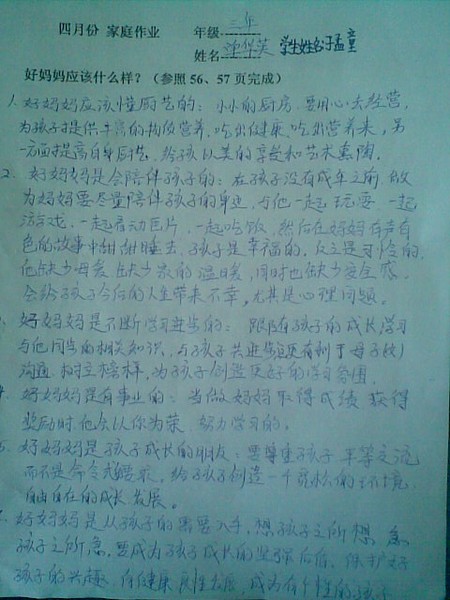 四月份 家庭作业 年级 三年
姓名 学生姓名于孟童
好妈妈应该什么样?(参照56、57页完成)
1. 好妈妈应该懂厨艺的: 小小的厨房, 要用心去经营,
为孩子提供丰富的物质营养, 吃出健康, 吃出营养来, 另
一方面提高自身厨艺, 给孩子以美的享受和艺术熏陶。
2. 好妈妈是会陪伴孩子的: 在孩子没有成年之前, 做
为妈妈要尽量陪伴孩子的身边, 与他一起玩耍 一起
游戏, 一起看动画片, 一起吃饭, 然后在妈妈有声有
色的故事中甜甜睡去, 孩子是幸福的, 反之是可怜的,
他缺少母爱 缺少家的温暖, 同时也缺少安全感,
会给孩子今后的人生带来不幸, 尤其是心理问题。
好妈妈是不断学习进步的: 跟随孩子的成长学习
与他同步的相关知识, 与孩子共进步这更有利于母子的
沟通 树立榜样, 为孩子创造更好的学习氛围。
好妈妈是有事业的: 当做妈妈取得成绩 获得
奖励时, 他会以你为荣, 努力学习的。
5. 好妈妈是孩子成长的朋友: 要尊重孩子 平等交流
而不是命令式要求, 给孩子创造一个宽松的环境,
自由自在的成长 发展。
好妈妈是从孩子的需要入手, 想孩子之所想 急
孩子之所急, 要成为孩子成长的坚强后盾, 保护好
孩子的兴趣, 有健康 良性发展, 成为有个性的孩子